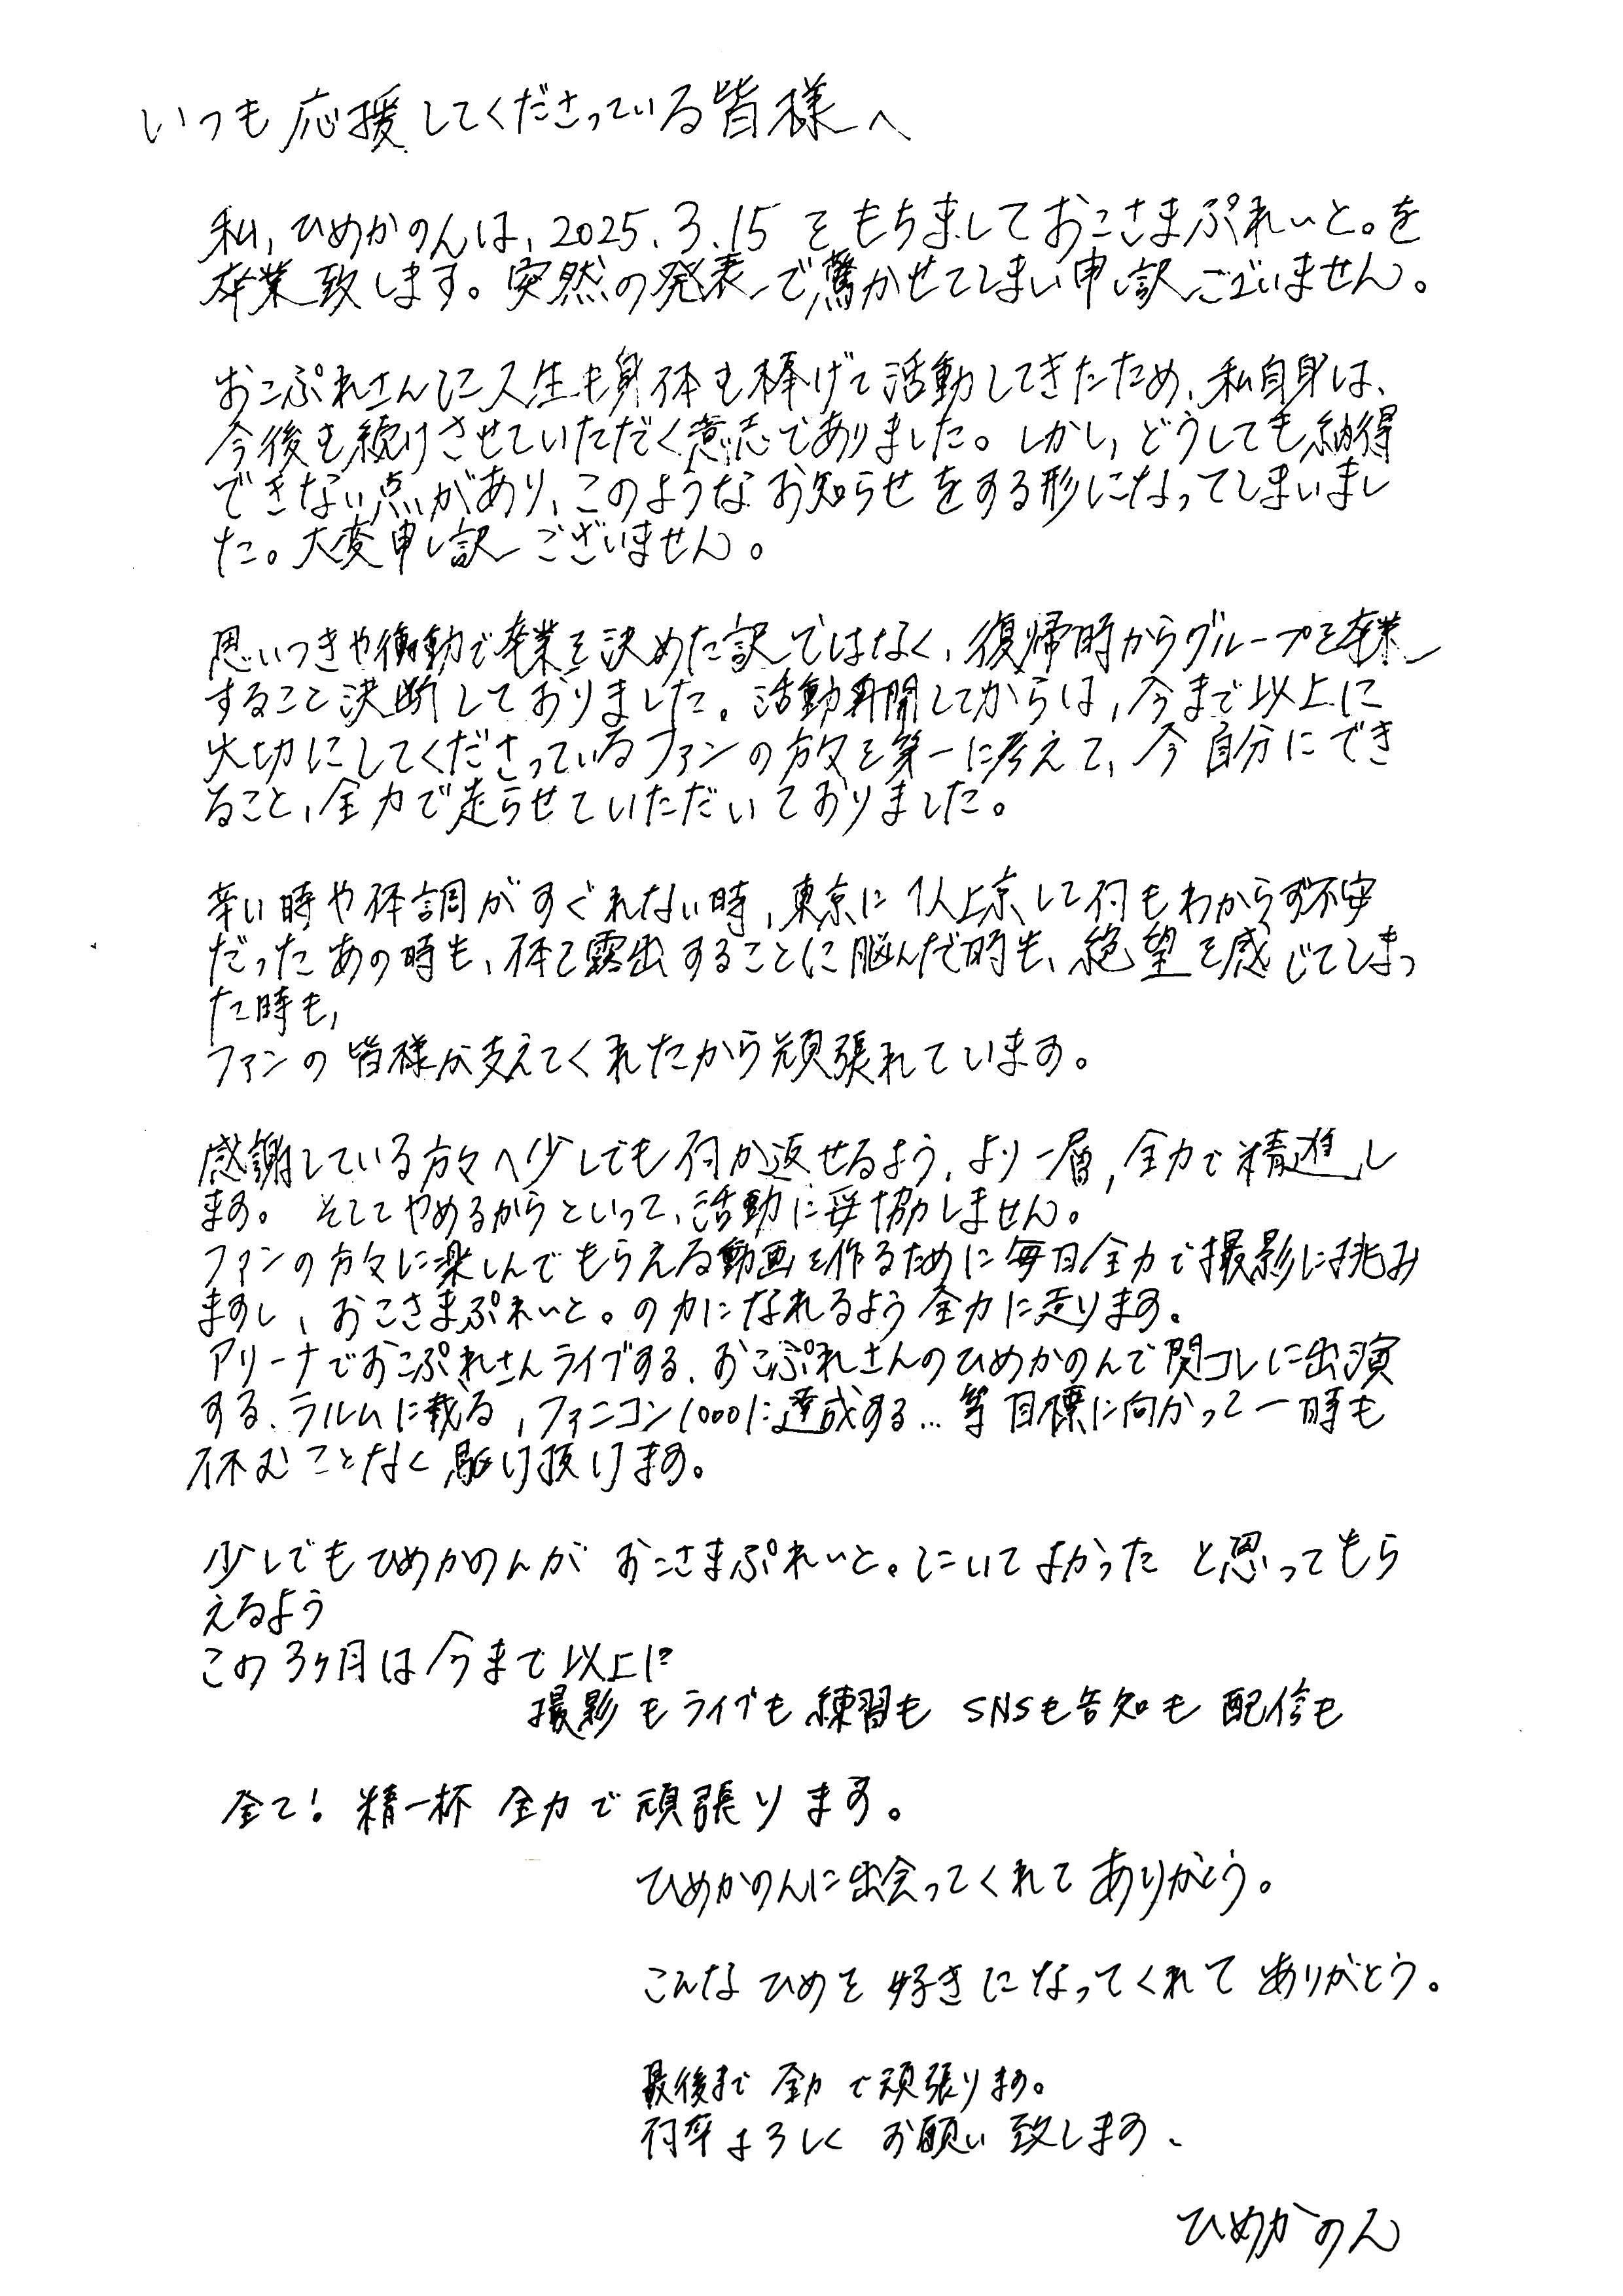 いつも応援してくださっている皆様へ
私、ひめかのんは、2025.3.15をもちましておこさまぷれいと。を
卒業致します。突然の発表で驚かせてしまい申し訳ございません。
おこぷれさんに人生も身体も捧げて活動してきたため、私自身は、
今後も続けさせていただく意志でありました。しかし、どうしても納得
できない点があり、このようなお知らせをする形になってしまいまし
た。大変申し訳ございません。
思いつきや衝動で卒業を決めた訳ではなく、復帰時からグループを卒業
すること決断しておりました。活動再開してからは、今まで以上に
大切にしてくださっているファンの方々を第一に考えて、今自分にでき
ること、全力で走らせていただいておりました。
辛い時や体調がすぐれない時、東京に1人上京して何もわからず不安
だったあの時も、体を露出することに悩んだ時も、絶望を感じてしまっ
た時も、
ファンの皆様が支えてくれたから頑張れています。
感謝している方々へ少しでも何か返せるよう、より一層、全力で精進し
ます。そしてやめるからといって、活動に妥協しません。
ファンの方々に楽しんでもらえる動画を作るために毎日全力で撮影に挑み
ますし、おこさまぷれいと。の力になれるよう全力に走ります。
アリーナでおこぷれさんライブする、おこぷれさんのひめかのんで関コレに出演
する、ラルムに載る、ファニコン1000に達成する…等目標に向かって一時も
休むことなく駆け抜けます。
少しでもひめかのんがおこさまぷれいと。にいてよかったと思ってもら
えるよう
この3ヶ月は今まで以上に
撮影もライブも練習もSNSも告知も配信も
全て!精一杯全力で頑張ります。
ひめかのんに出会ってくれてありがとう。
こんなひめを好きになってくれてありがとう。
最後まで全力で頑張ります。
何卒よろしくお願い致します、
ひめかのん